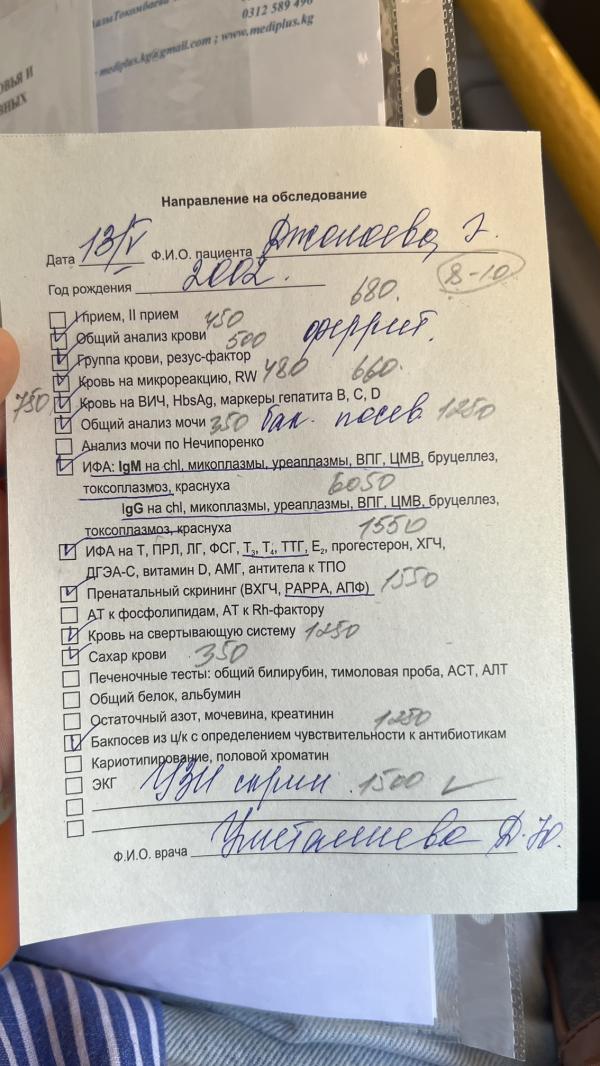 0312 589 496
mediplus.kg@gmail.com ; www.mediplus.kg
Направление на обследование
Дата 13/V Ф.И.О. пациента
Год рождения 2002. 680. 8-10
I прием, II прием 450
Общий анализ крови 500 феррит.
Группа крови, резус-фактор
Кровь на микрореакцию, RW 480 660.
750 Кровь на ВИЧ, HbsAg, маркеры гепатита B, C, D
Общий анализ мочи 350 бак. посев 1250
Анализ мочи по Нечипоренко
ИФА: IgM на chl, микоплазмы, уреаплазмы, ВПГ, ЦМВ, бруцеллез,
токсоплазмоз, краснуха 6050
IgG на chl, микоплазмы, уреаплазмы, ВПГ, ЦМВ, бруцеллез,
токсоплазмоз, краснуха 1550
ИФА на Т, ПРЛ, ЛГ, ФСГ, Т3, Т4, ТТГ, Е2, прогестерон, ХГЧ,
ДГЭА-С, витамин D, АМГ, антитела к ТПО
Пренатальный скрининг (ВХГЧ, PAPPA, АПФ) 1550
АТ к фосфолипидам, АТ к Rh-фактору
Кровь на свертывающую систему 1250
Сахар крови 350
Печеночные тесты: общий билирубин, тимоловая проба, АСТ, АЛТ
Общий белок, альбумин
Остаточный азот, мочевина, креатинин 1250
Бакпосев из ц/к с определением чувствительности к антибиотикам
Кариотипирование, половой хроматин
ЭКГ УЗИ скрин 1500
Ф.И.О. врача Д.Ю.